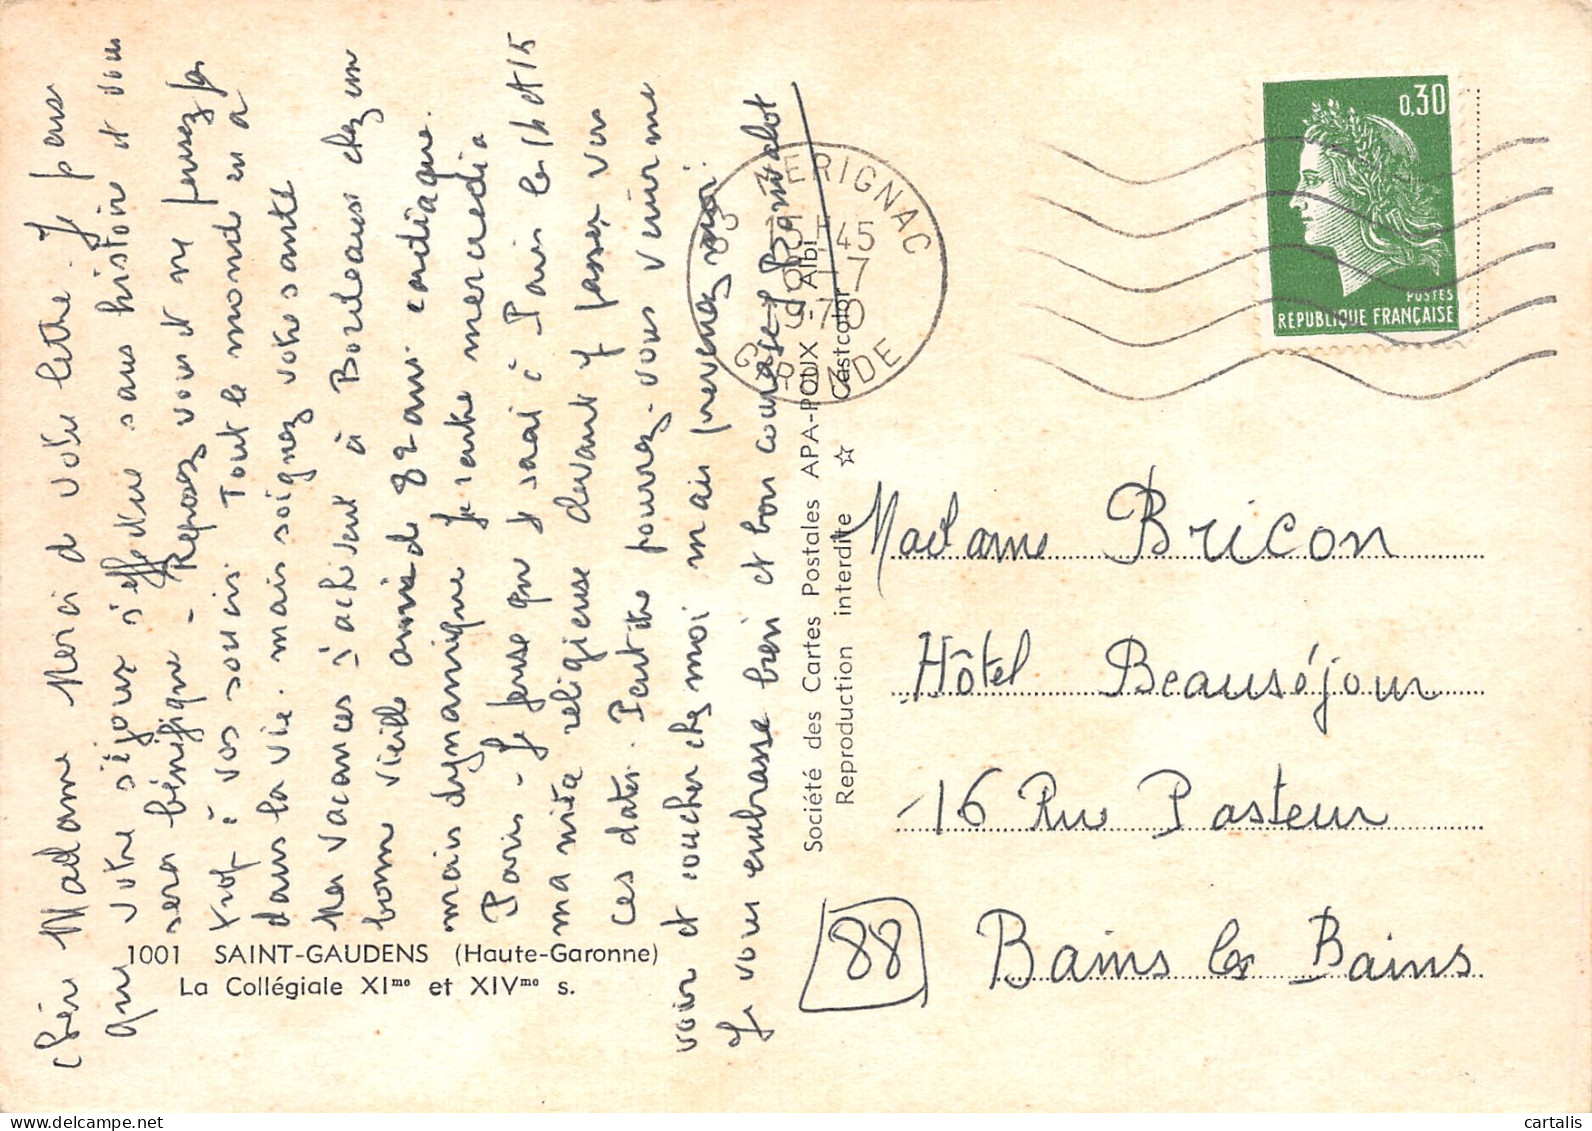 Chère Madame Merci de votre lettre. Je pense
que votre séjour s'effectue sans histoire et vous
sera bénéfique - Reposez vous et ne pensez pas
trop à vos soucis. Tout le monde en a
dans la vie. mais soignez votre santé
Mes vacances s'achèvent à Bordeaux chez une
bonne vieille amie de 82 ans cardiaque.
mais dynamique Je rentre mercredi à
Paris - Je pense que je serai à Paris les 14 et 15
ma nièce religieuse devant y passer vers
ces dates. Peut être pourrez-vous venir me
voir et coucher chez moi mais prevenez moi.
Je vous embrasse bien et bon courage
1001 SAINT-GAUDENS (Haute-Garonne)
La Collégiale XIme et XIVme s.
Société des Cartes Postales APA-POUX - Albi
Reproduction interdite ☆ Castcolor
33 MERIGNAC
15H45
7
1970
GIRONDE
0,30
POSTES
REPUBLIQUE FRANÇAISE
Madame Bricon
Hôtel Beauséjour
16 Rue Pasteur
88 Bains les Bains
cartalis